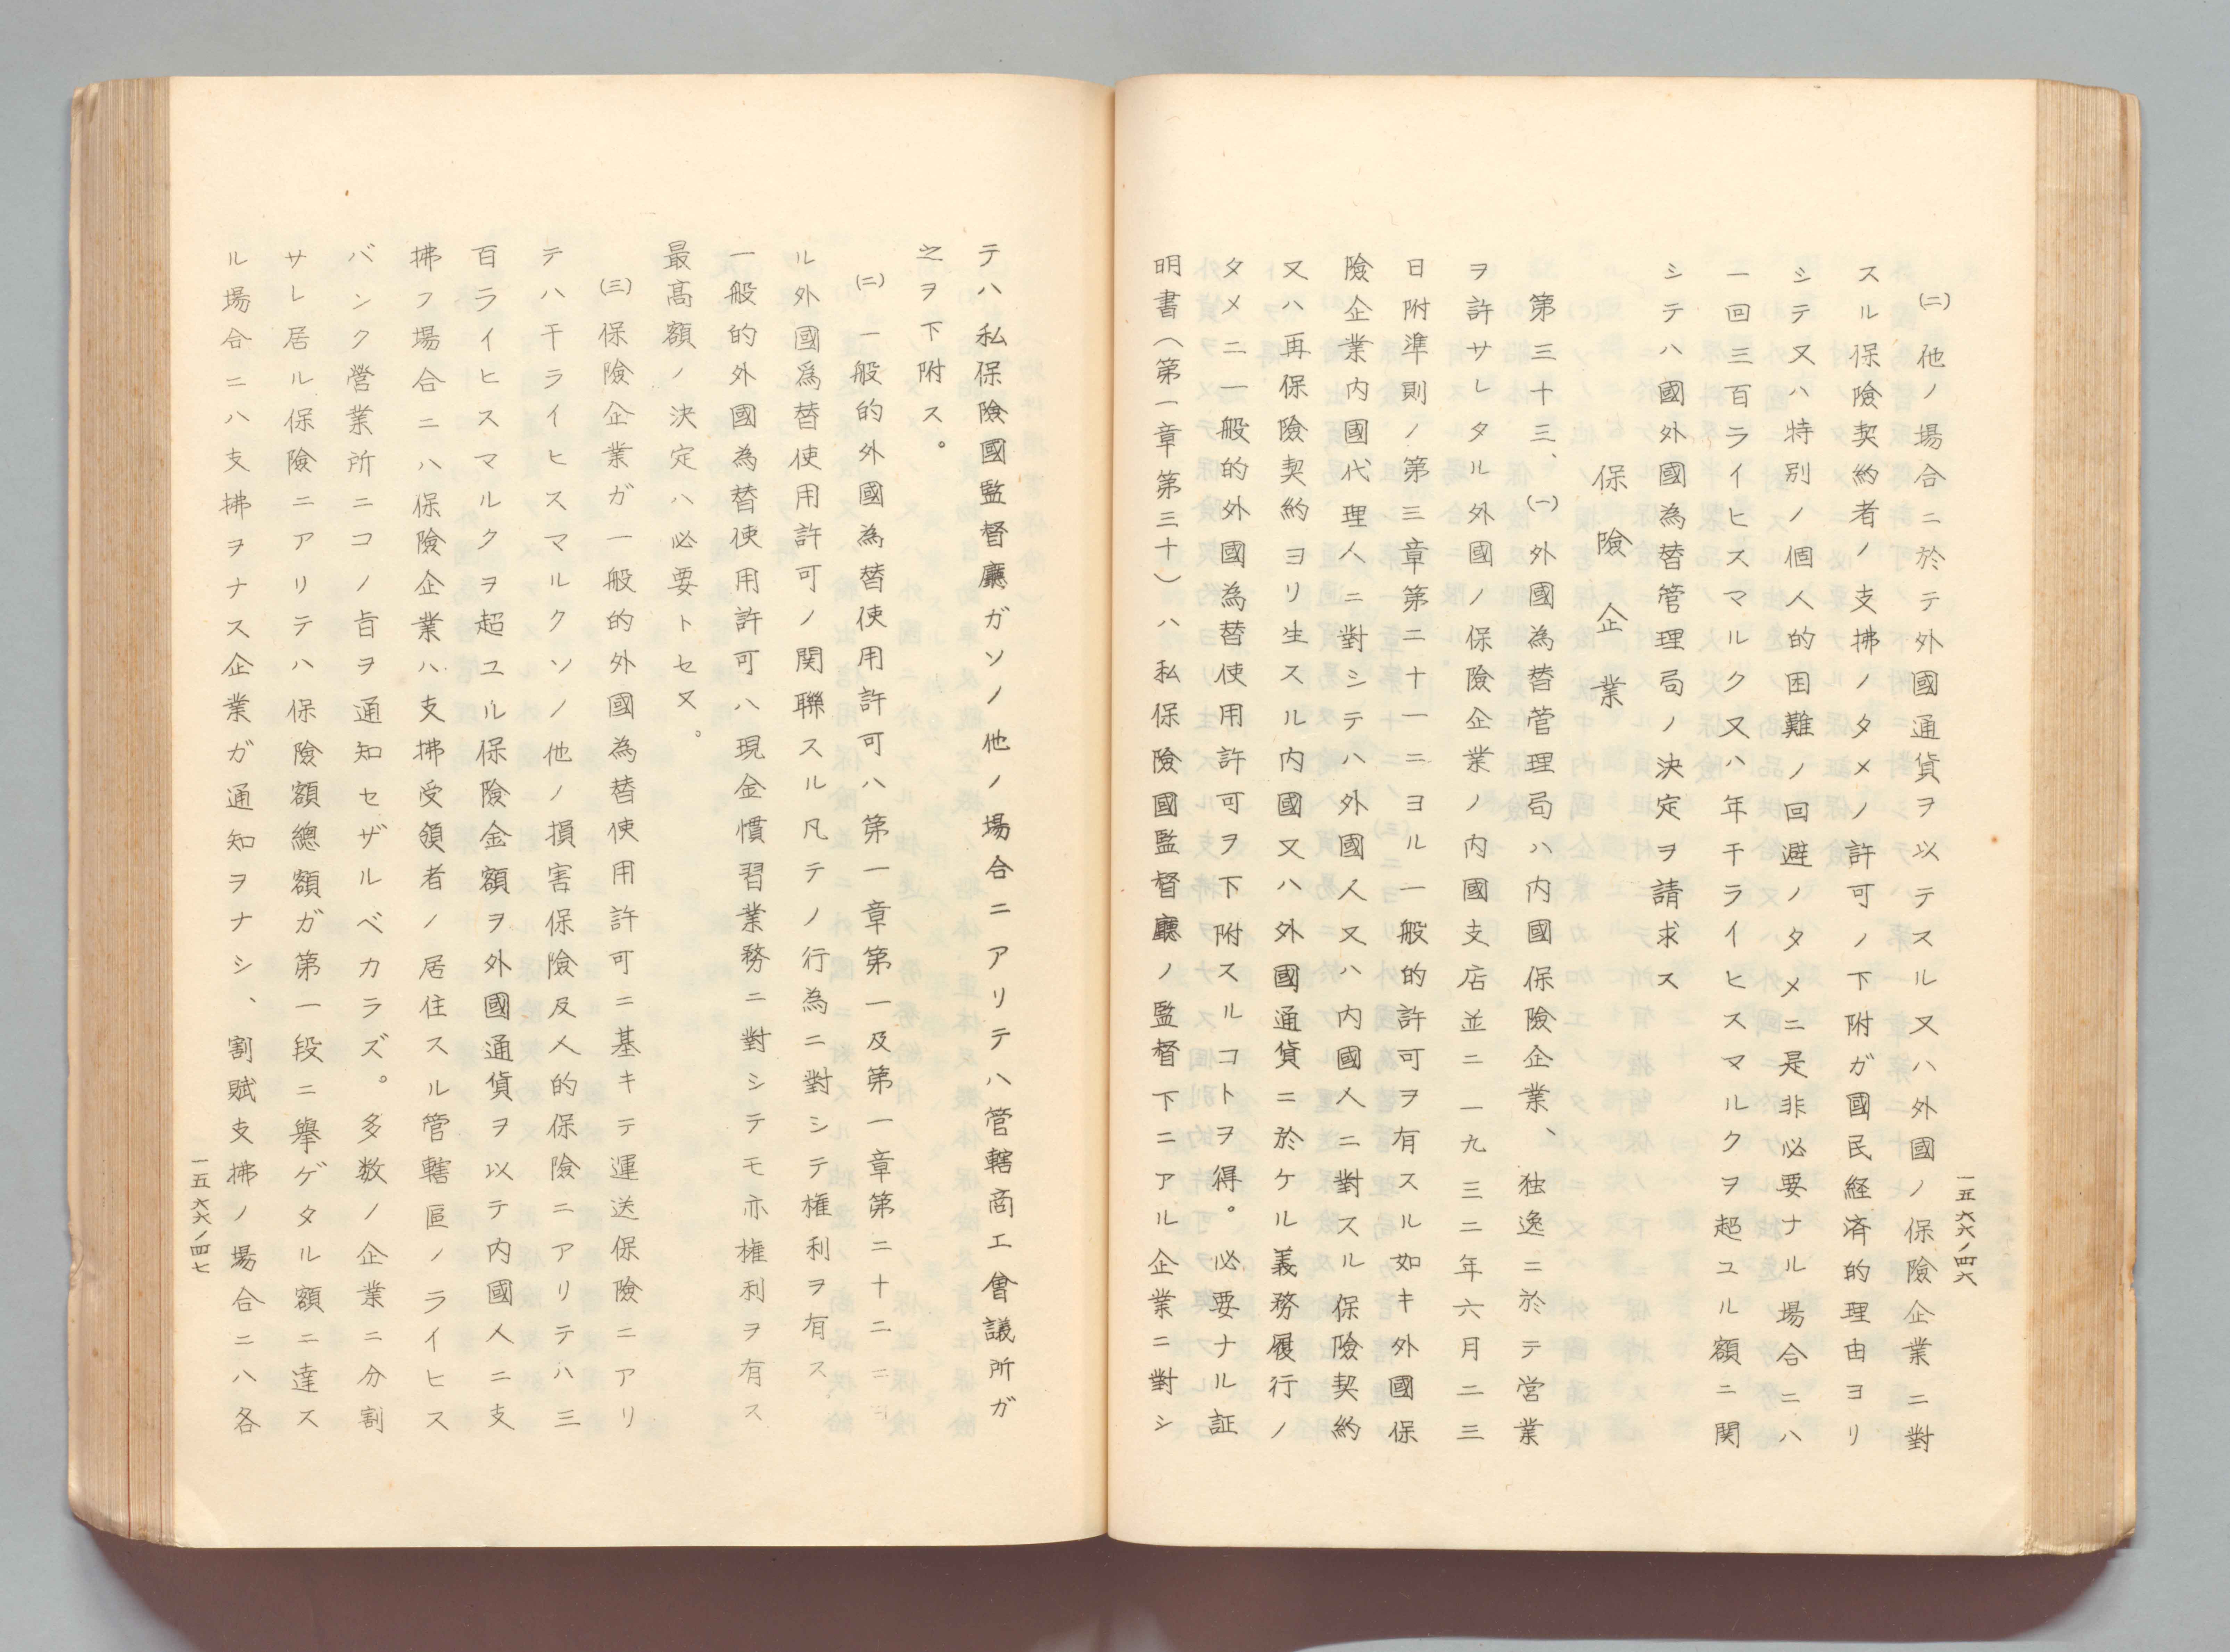 ㈡ 他ノ場合ニ於テ外國通貨ヲ以テスル又ハ外國ノ保險企業ニ對
スル保險契約者ノ支拂ノタメノ許可ノ下附ガ國民経済的理由ヨリ
シテ又ハ特別ノ個人的困難ノ回避ノタメニ是非必要ナル場合ニハ
一回三百ライヒスマルク又ハ年千ライヒスマルクヲ超ユル額ニ関
シテハ國外國為替管理局ノ決定ヲ請求ス
保險企業
第三十三、㈠ 外國為替管理局ハ内國保險企業、独逸ニ於テ営業
ヲ許サレタル外國ノ保險企業ノ内國支店並ニ一九三二年六月二三
日附準則ノ第三章第二十一ニヨル一般的許可ヲ有スル如キ外國保
險企業内國代理人ニ對シテハ外國人又ハ内國人ニ對スル保險契約
又ハ再保險契約ヨリ生スル内國又ハ外國通貨ニ於ケル義務履行ノ
タメニ一般的外國為替使用許可ヲ下附スルコトヲ得。必要ナル証
明書(第一章第三十)ハ私保險國監督廳ノ監督下ニアル企業ニ對シ
一五六六ノ四六
テハ私保險國監督廳ガソノ他ノ場合ニアリテハ管轄商工會議所ガ
之ヲ下附ス。
㈡ 一般的外國為替使用許可ハ第一章第一及第一章第二十二ニヨ
ル外國爲替使用許可ノ関聯スル凡テノ行為ニ對シテ権利ヲ有ス
一般的外國為替使用許可ハ現金慣習業務ニ對シテモ亦権利ヲ有ス
最高額ノ決定ハ必要トセヌ。
㈢ 保險企業ガ一般的外國為替使用許可ニ基キテ運送保險ニアリ
テハ千ライヒスマルクソノ他ノ損害保險及人的保險ニアリテハ三
百ライヒスマルクヲ超ユル保險金額ヲ外國通貨ヲ以テ内國人ニ支
拂フ場合ニハ保險企業ハ支拂受領者ノ居住スル管轄區ノライヒス
バンク營業所ニコノ旨ヲ通知セザルベカラズ。多数ノ企業ニ分割
サレ居ル保險ニアリテハ保險額總額ガ第一段ニ舉ゲタル額ニ達ス
ル場合ニハ支拂ヲナス企業ガ通知ヲナシ、割賦支拂ノ場合ニハ各
一五六六ノ四七